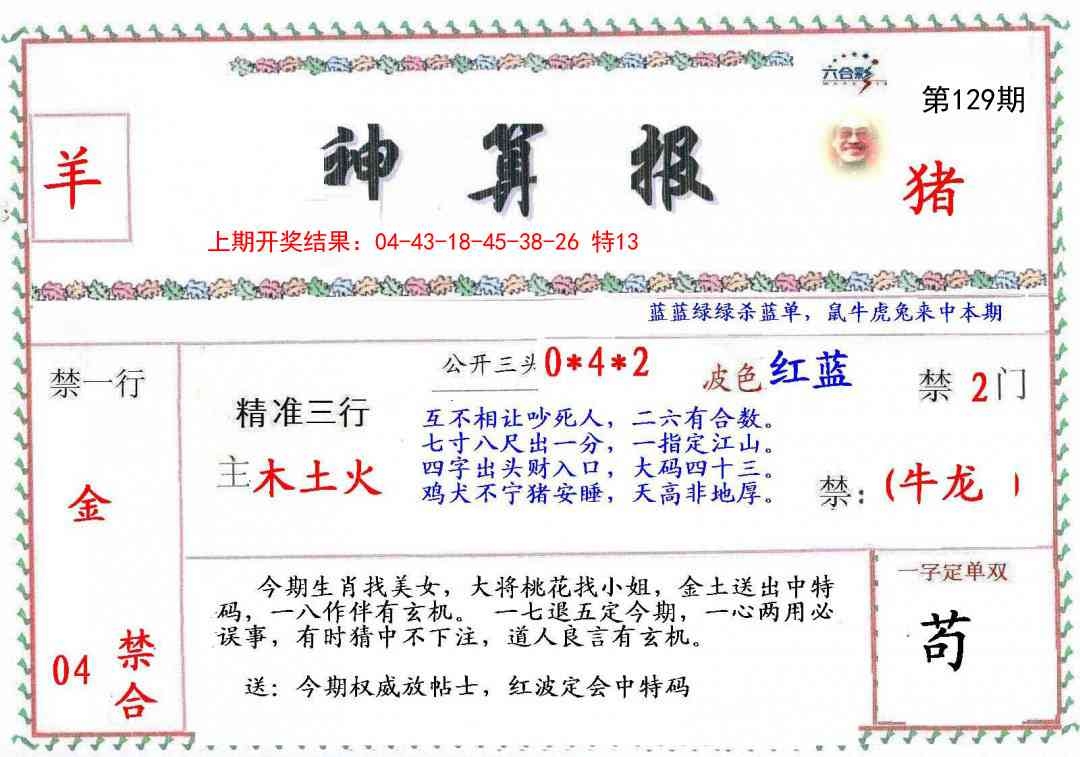 六合彩
第129期
羊
神算报
猪
上期开奖结果：04-43-18-45-38-26 特13
蓝蓝绿绿杀蓝单，鼠牛虎兔来中本期
禁一行
公开三头0*4*2
波色红蓝
禁2门
精准三行
主木土火
互不相让吵死人，二六有合数。
七寸八尺出一分，一指定江山。
四字出头财入口，大码四十三。
鸡犬不宁猪安睡，天高非地厚。
禁：(牛龙 )
金
今期生肖找美女，大将桃花找小姐，金土送出中特
码，一八作伴有玄机。 一七退五定今期，一心两用必
误事，有时猜中不下注，道人良言有玄机。
送：今期权威放帖士，红波定会中特码
一字定单双
苟
04
禁合